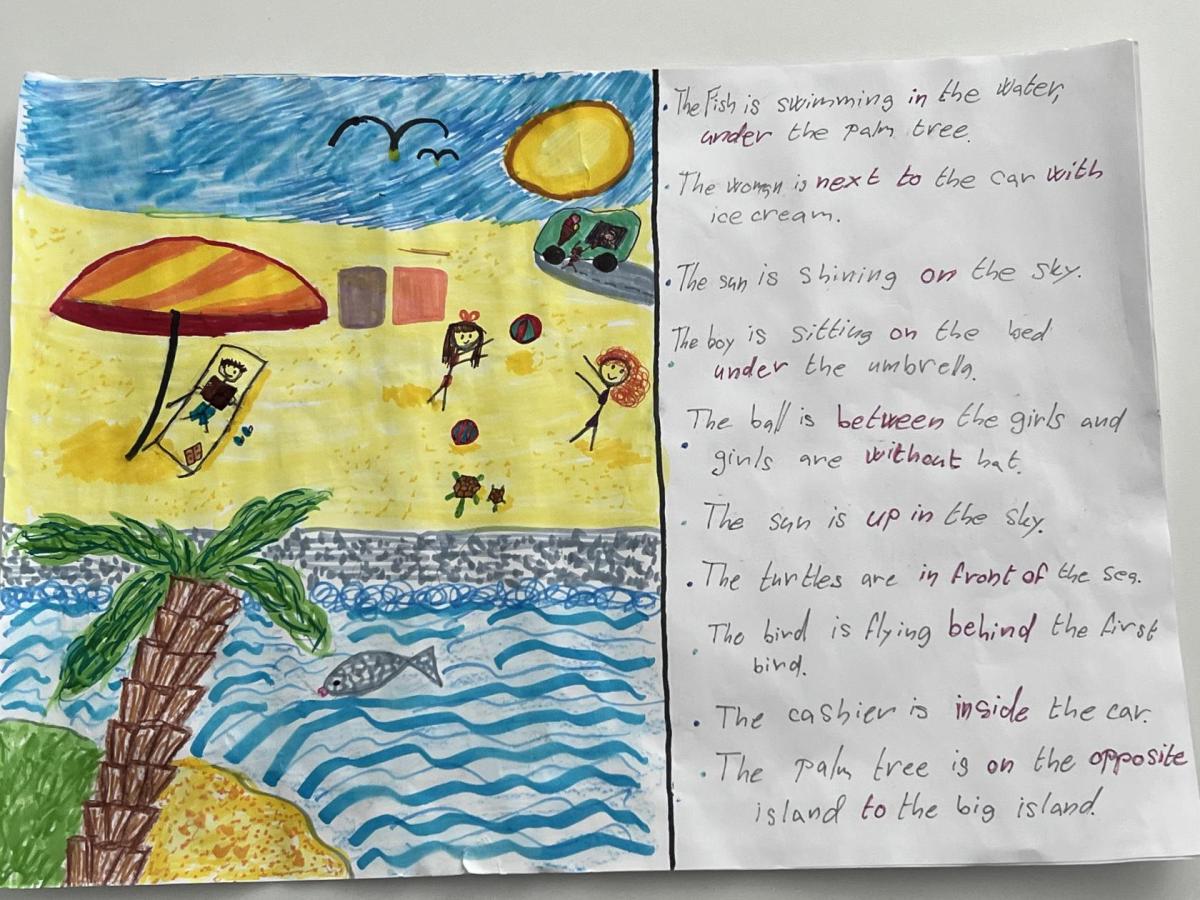 . The Fish is swimming in the water,
under the palm tree.
. The woman is next to the car with
ice cream.
. The sun is shining on the sky.
The boy is sitting on the bed
. under the umbrella.
The ball is between the girls and
. girls are without hat.
. The sun is up in the sky.
. The turtles are in front of the sea.
The bird is flying behind the first
. bird.
. The cashier is inside the car.
. The palm tree is on the opposite
island to the big island.